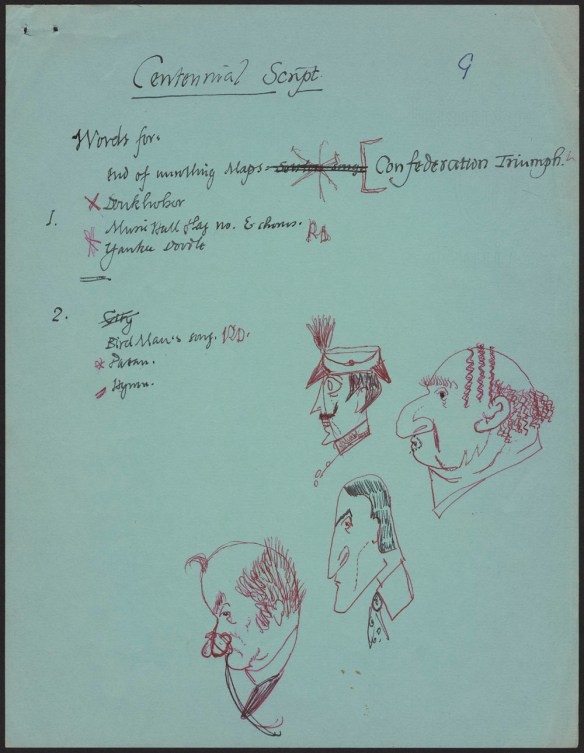 Centennial Script.
9
Words for.
End of unrolling Maps. Confederation Triumph.
Doukhobor
1. Music Hall flag no. & chorus. RD
Yankee Doodle
2. City
Bird Man's song. RD.
Pavan.
Hymn.